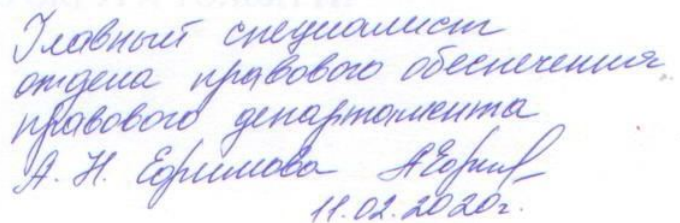 Главный специалист
отдела правового обеспечения
правового департамента
А. Н. Ефимова
11.02.2020г.